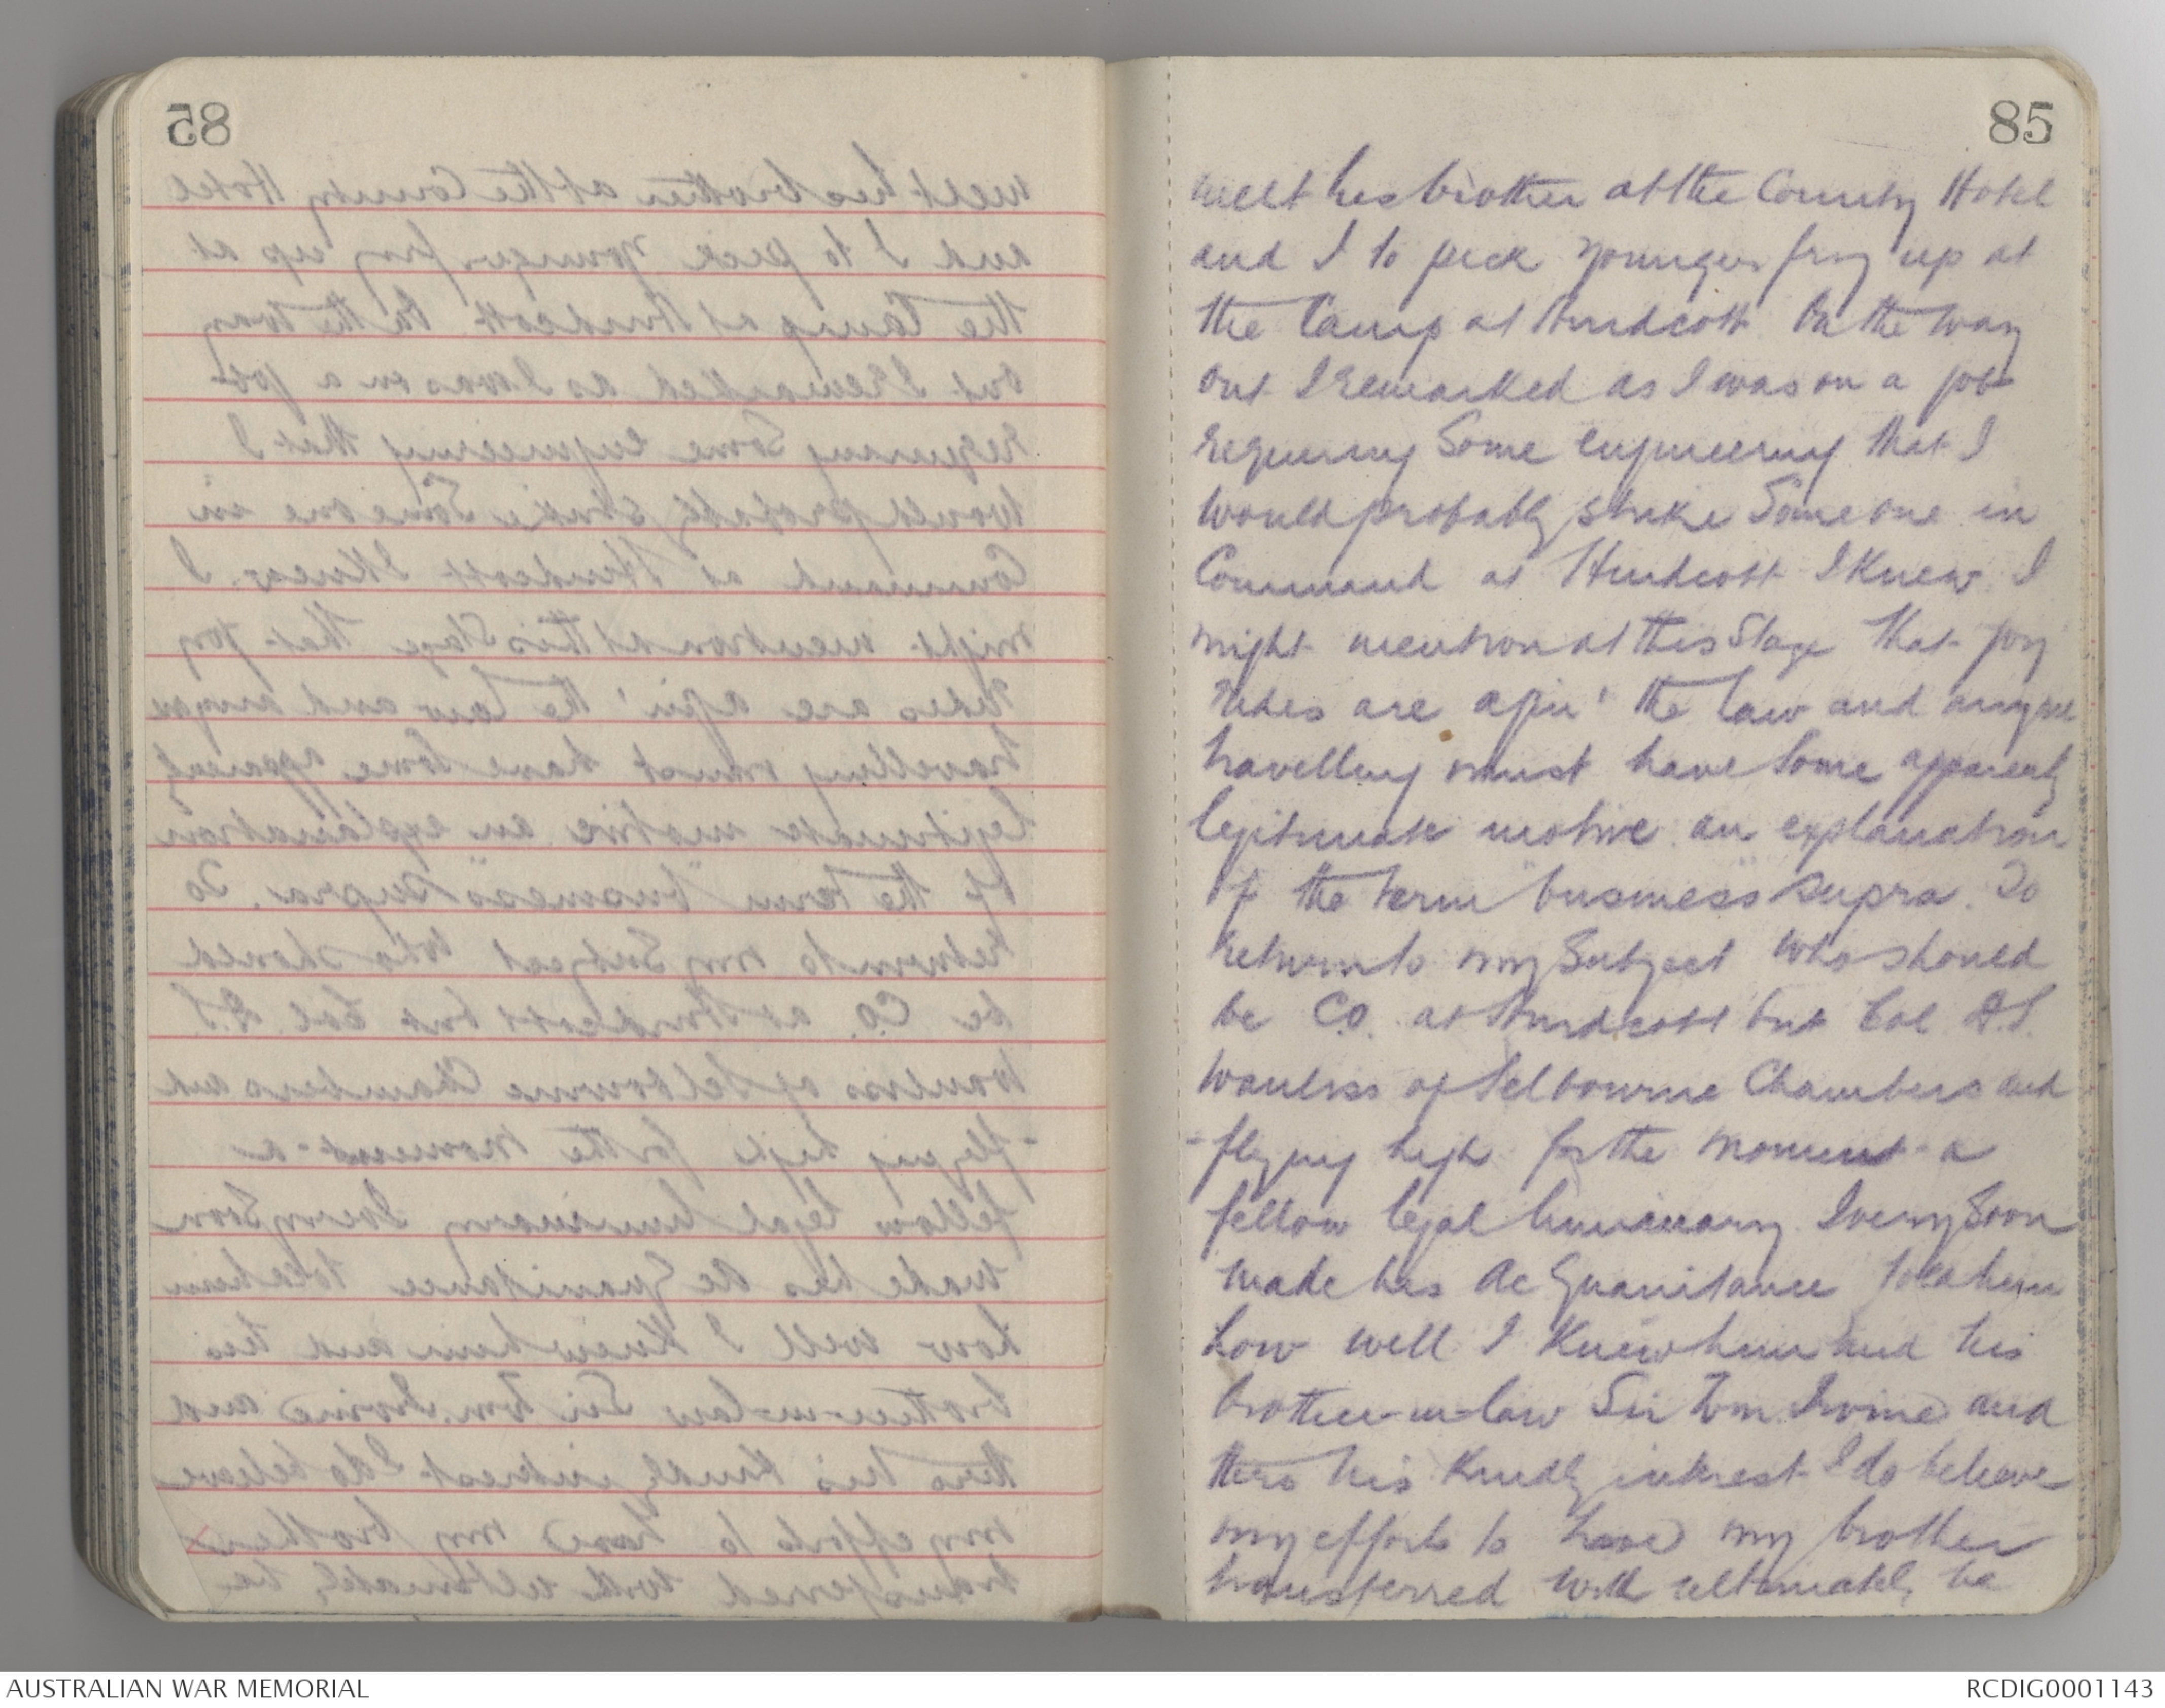 85
meet his brother at the County Hotel
and I to pick younger fry up at
the Camp at Hurdcott On the way
out I remarked as I was on a job
requiring Some engineering that I
would probably strike Some one in
Command at Hurdcott I Knew. I
might mention at this Stage that joy
rides are agin' the law and anyone
travelling must have Some apparently
legitimate motive an explanation
of the term "business" supra. To
return to my Subject who should
be C.O. at Hurdcott but Col
of Selbourne Chambers and
- flying high for the moment - a
fellow legal luminary I very Soon
made his Acquanitance told him
how well I Knew him and his
brother-in-law Sir Wm. Irvine and
thro his Kindly interest I do believe
my efforts to have my brother
transferred will ultimately be
AUSTRALIAN WAR MEMORIAL
RCDIG0001143